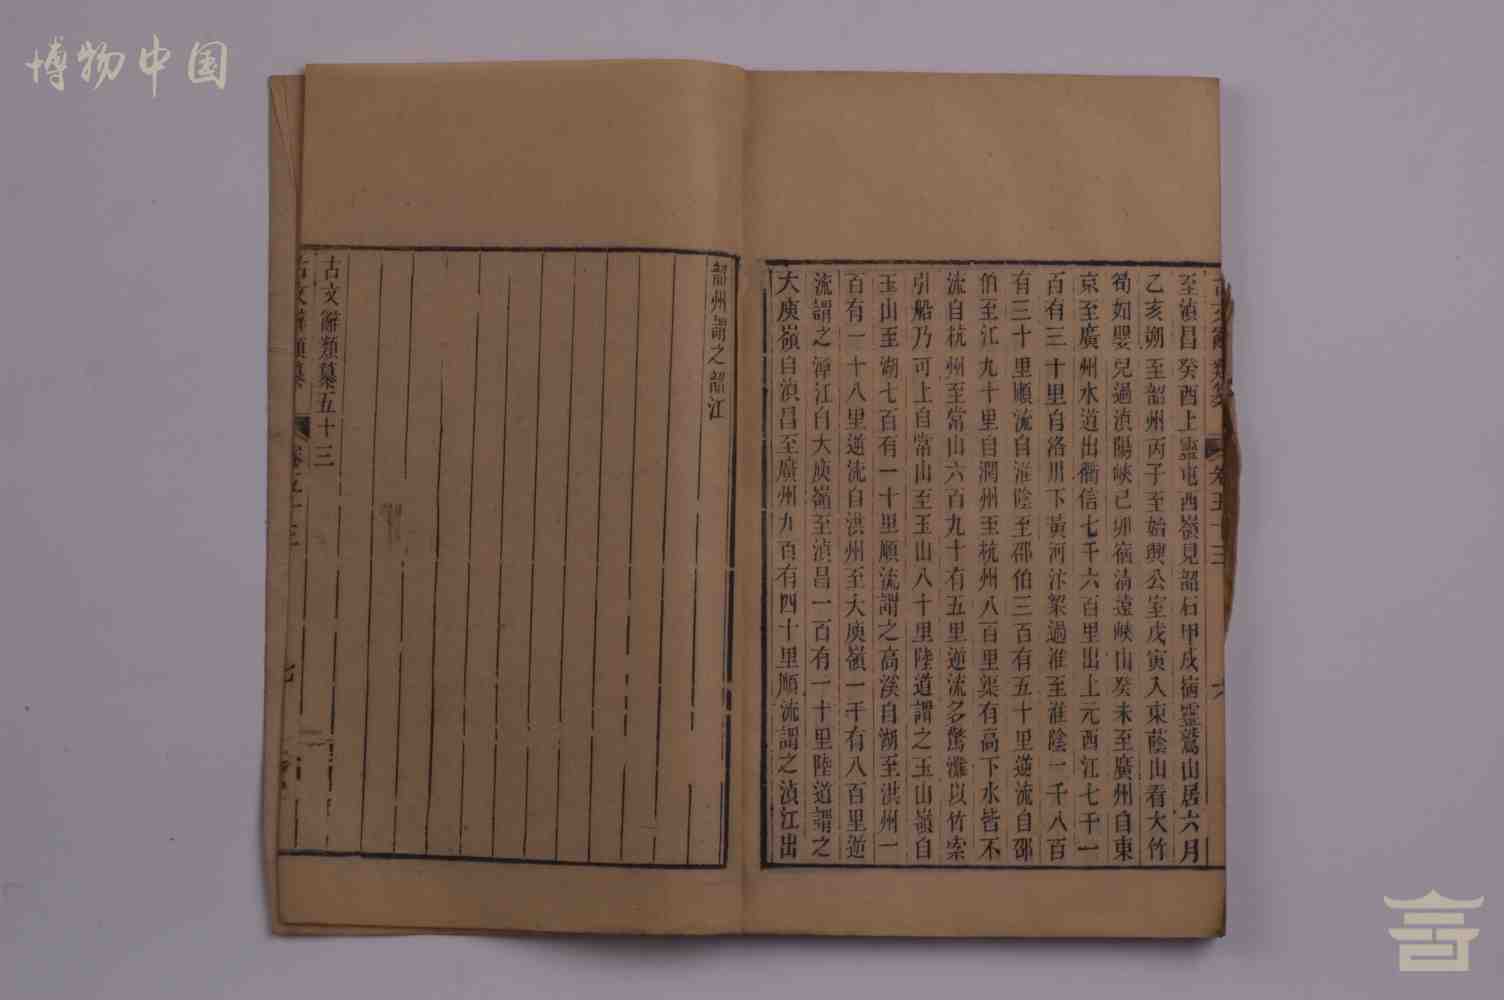 博物中国
至滇昌癸酉上靈屯西嶺見韶石甲戌宿靈鷲山居六月
乙亥朔至韶州丙子至始興公室戊寅入東蔭山看大竹
筍如嬰兒過滇陽峽己卯宿淸遠峽山癸未至廣州自東
京至廣州水道出衢信七千六百里出上元西江七千一
百有三十里自洛川下黃河汴梁過淮至淮陰一千八百
有三十里順流自淮陰至邵伯三百有五十里逆流自邵
伯至江九十里自潤州至杭州八百里渠有高下水皆不
流自杭州至常山六百九十有五里逆流多驚灘以竹索
引船乃可上自常山至玉山八十里陸道謂之玉山嶺自
玉山至湖七百有一十里順流謂之高溪自湖至洪州一
百有一十八里逆流自洪州至大庾嶺一千有八百里逆
流謂之漳江自大庾嶺至滇昌一百有一十里陸道謂之
大庾嶺自滇昌至廣州九百有四十里順流謂之滇江出
韶州謂之韶江
古文辭類纂五十三